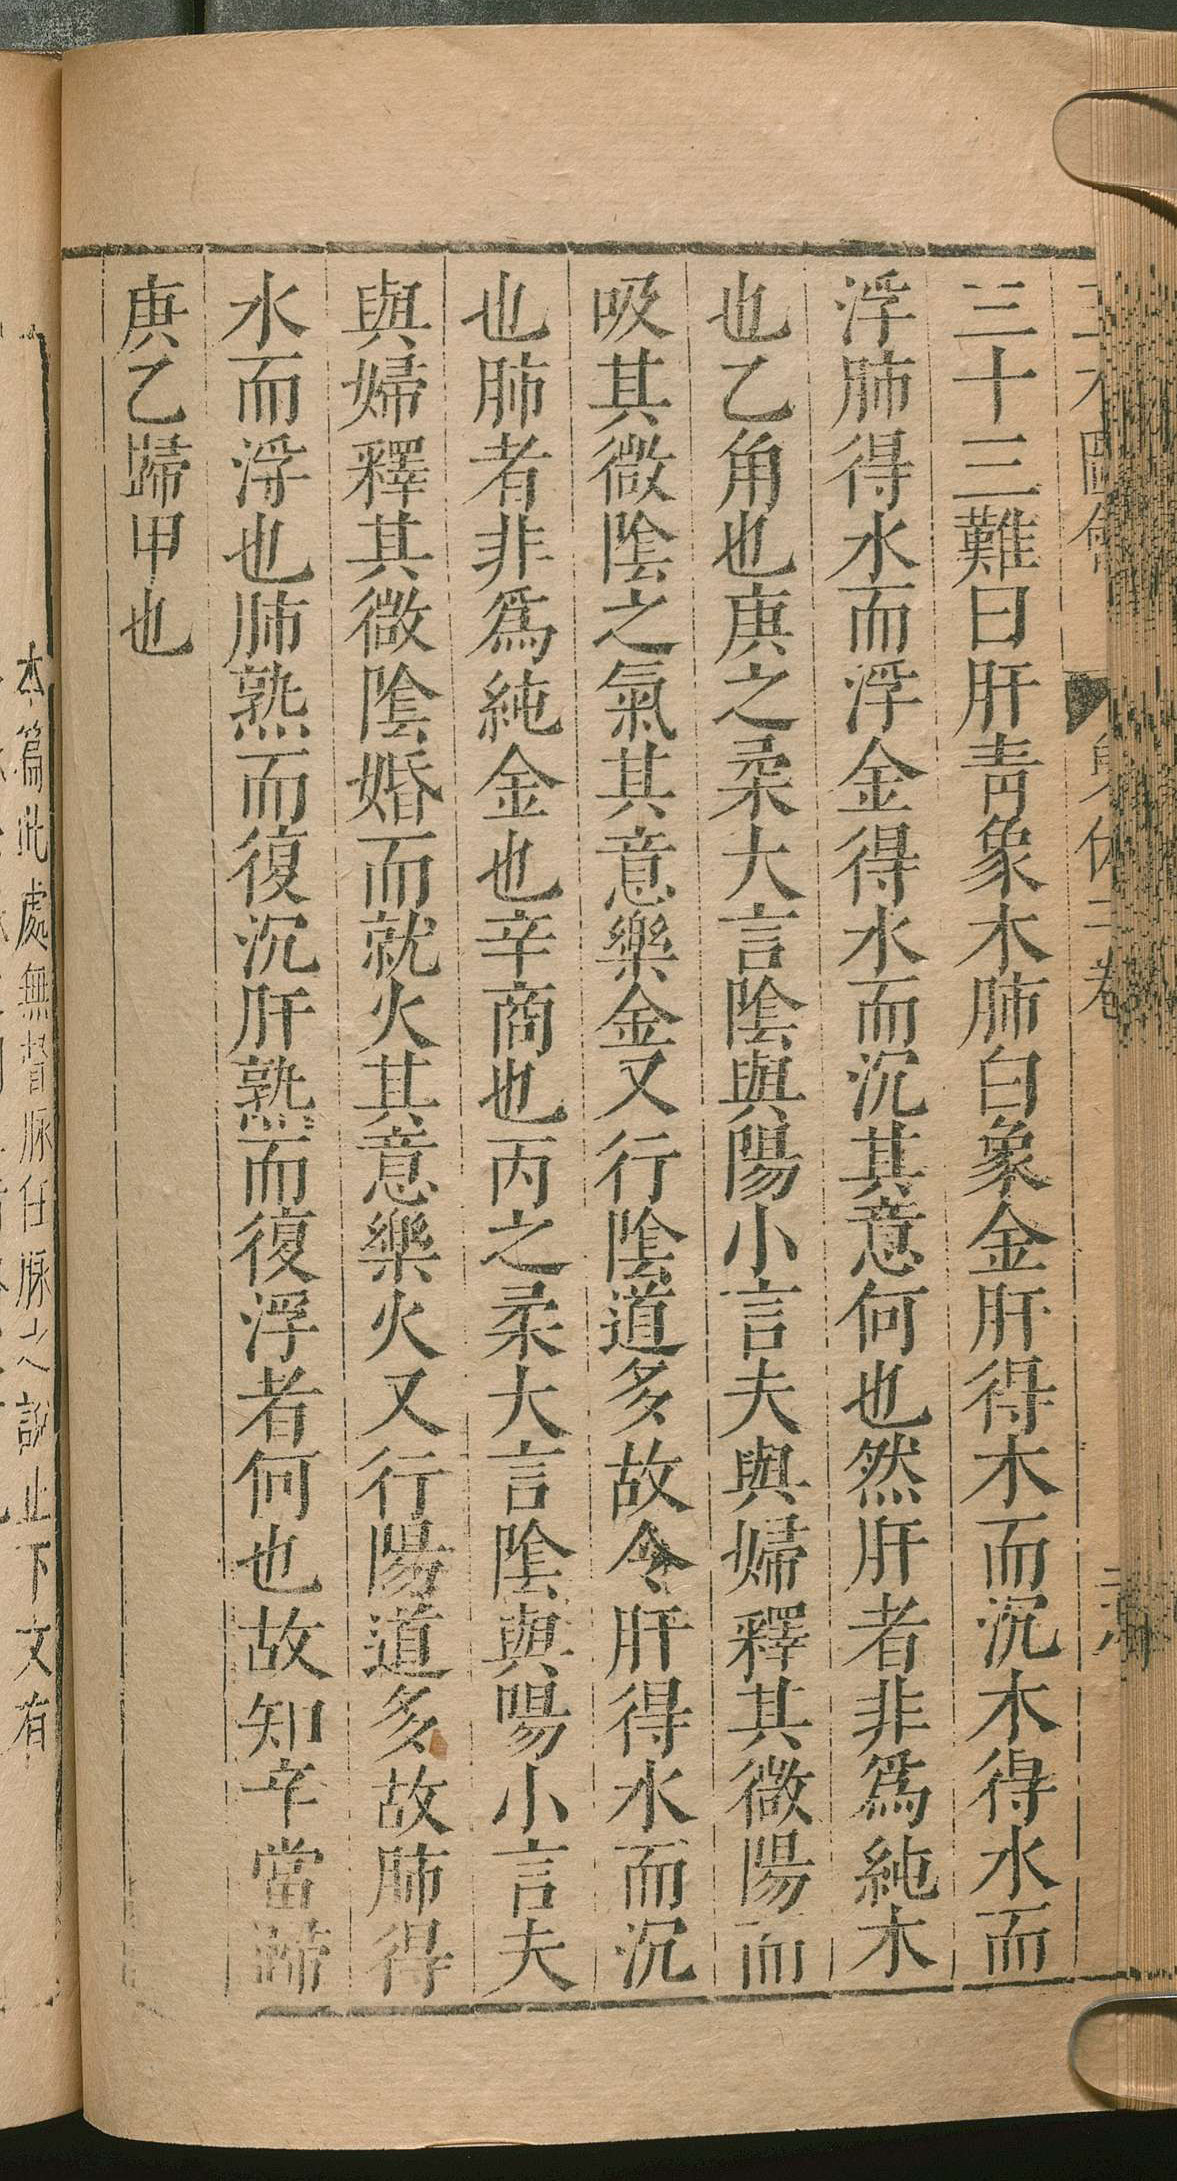 三十三難曰肝青象木肺白象金肝得木而沉木得水而
浮肺得水而浮金得水而沉其意何也然肝者非爲純木
也乙角也庚之柔大言陰與陽小言夫與婦釋其微陽而
吸其微陰之氣其意樂金又行陰道多故令肝得水而沉
也肺者非爲純金也辛商也丙之柔大言陰與陽小言夫
與婦釋其微陰婚而就火其意樂火又行陽道多故肺得
水而浮也肺熟而復沉肝熟而復浮者何也故知辛當歸
庚乙歸甲也
本篇此處無督脉任脉之說止下文有